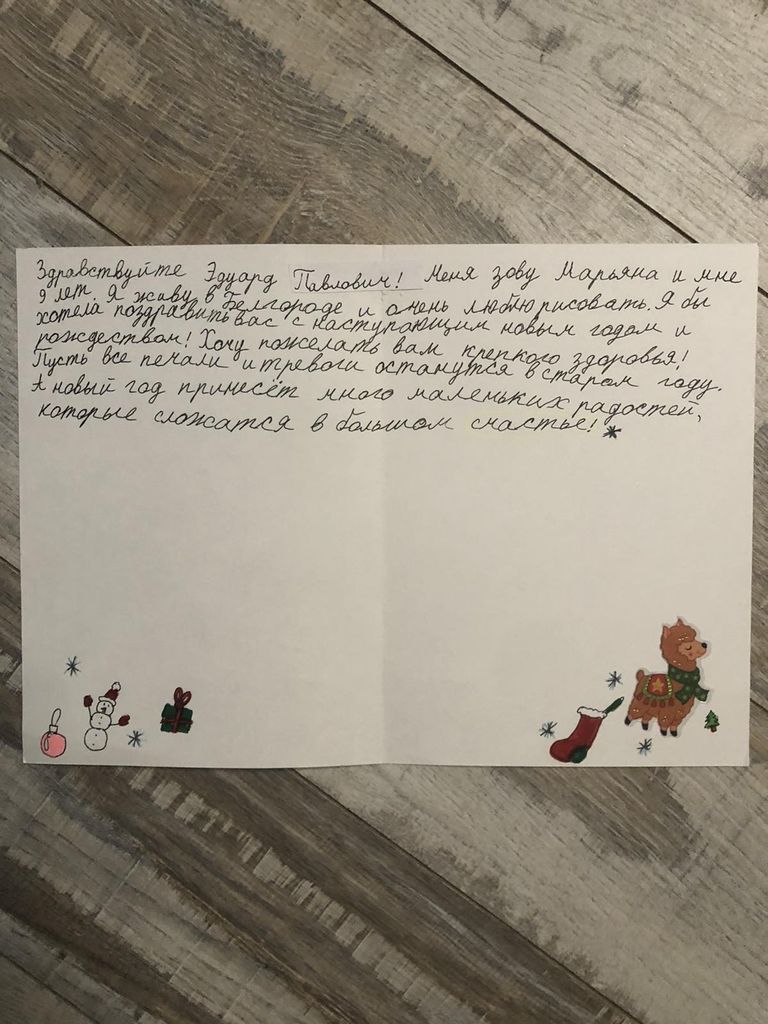 Здравствуйте Эдуард Павлович! Меня зову Марьяна и мне
9 лет. Я живу в Белгороде и очень люблю рисовать. Я бы
хотела поздравить вас с наступающим новым годом и
рождеством! Хочу пожелать вам крепкого здоровья!
Пусть все печали и тревоги останутся в старом году.
А новый год принесёт много маленьких радостей,
которые сложатся в большом счастье!